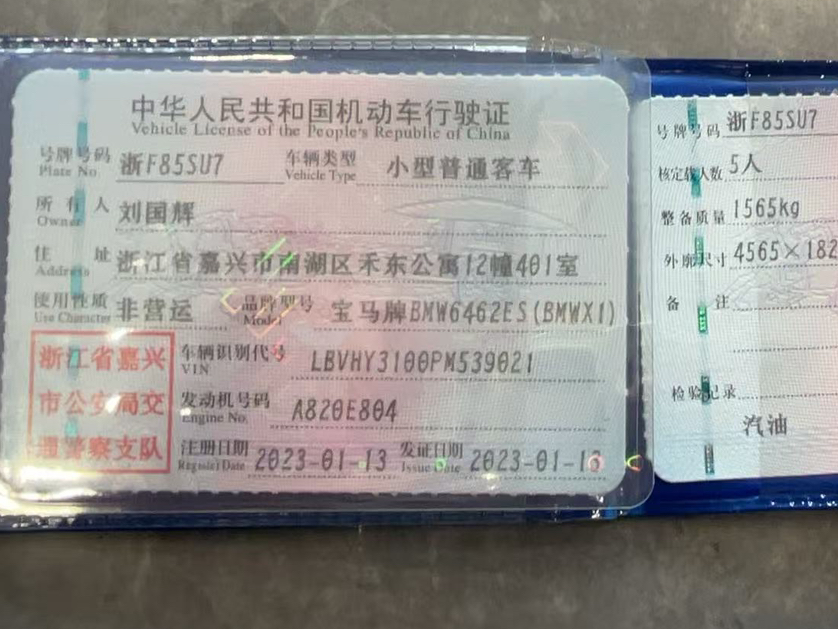 中华人民共和国机动车行驶证
Vehicle License of the People's Republic of China
号牌号码 浙F85SU7 车辆类型 小型普通客车
Plate No. Vehicle Type
所有人 刘国辉
Owner
住址 浙江省嘉兴市南湖区禾东公寓12幢401室
Address
使用性质 非营运 品牌型号 宝马牌BMW6462ES(BMWX1)
Use Character Model
浙江省嘉兴
市公安局交
通警察支队
车辆识别代号 LBVHY3100PM539021
VIN
发动机号码 A820E804
Engine No.
注册日期 2023-01-13 发证日期 2023-01-13
Register Date Issue Date
号牌号码 浙F85SU7
核定载人数 5人
整备质量 1565kg
外廓尺寸 4565×182
备注
检验记录
汽油